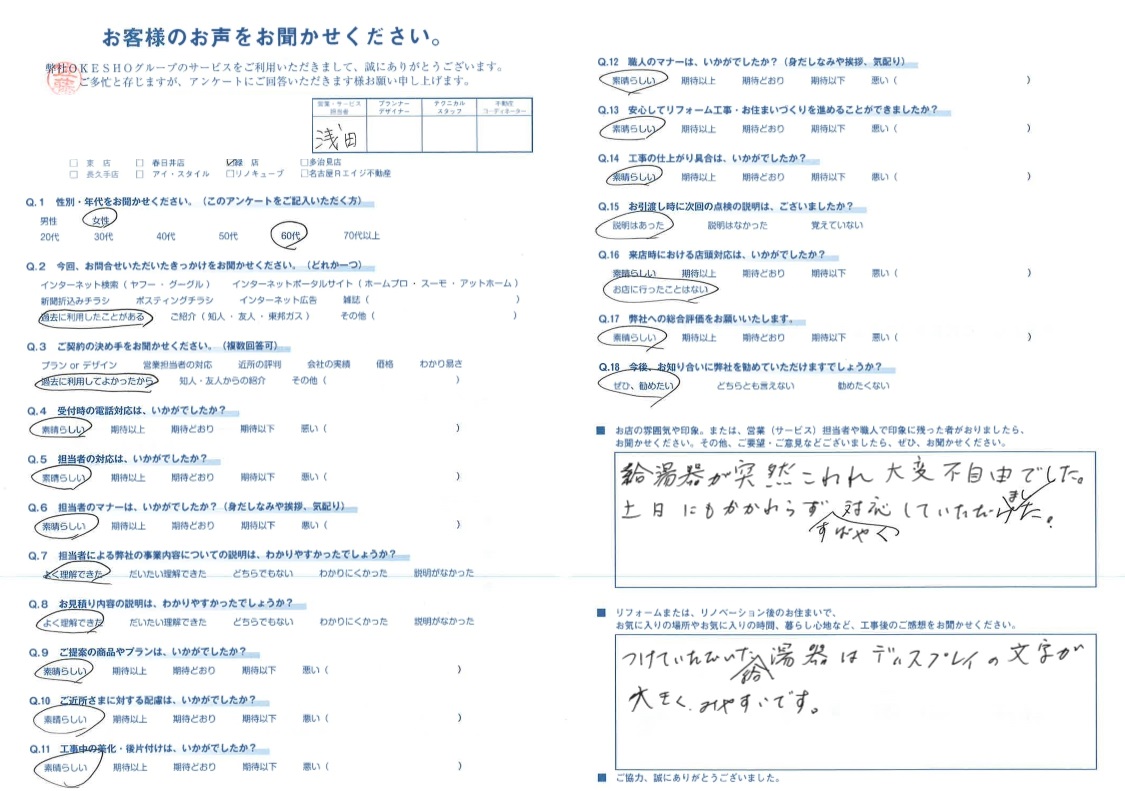 お客様のお声をお聞かせください。
弊社OKESHOグループのサービスをご利用いただきまして、誠にありがとうございます。
ご多忙と存じますが、アンケートにご回答いただきます様お願い申し上げます。
営業・サービス担当者 プランナーデザイナー テクニカルスタッフ 不動産コーディネーター
浅田
□ 東 店 □ 春日井店 ☑緑 店 □多治見店
□ 長久手店 □ アイ・スタイル □リノキューブ □名古屋Rエイジ不動産
Q.1 性別・年代をお聞かせください。(このアンケートをご記入いただく方)
男性 女性
20代 30代 40代 50代 60代 70代以上
Q.2 今回、お問合せいただいたきっかけをお聞かせください。(どれか一つ)
インターネット検索(ヤフー・グーグル) インターネットポータルサイト(ホームプロ・スーモ・アットホーム)
新聞折込みチラシ ポスティングチラシ インターネット広告 雑誌( )
過去に利用したことがある ご紹介(知人・友人・東邦ガス) その他( )
Q.3 ご契約の決め手をお聞かせください。(複数回答可)
プラン or デザイン 営業担当者の対応 近所の評判 会社の実績 価格 わかり易さ
過去に利用してよかったから 知人・友人からの紹介 その他( )
Q.4 受付時の電話対応は、いかがでしたか?
素晴らしい 期待以上 期待どおり 期待以下 悪い( )
Q.5 担当者の対応は、いかがでしたか?
素晴らしい 期待以上 期待どおり 期待以下 悪い( )
Q.6 担当者のマナーは、いかがでしたか?(身だしなみや挨拶、気配り)
素晴らしい 期待以上 期待どおり 期待以下 悪い( )
Q.7 担当者による弊社の事業内容についての説明は、わかりやすかったでしょうか?
よく理解できた だいたい理解できた どちらでもない わかりにくかった 説明がなかった
Q.8 お見積り内容の説明は、わかりやすかったでしょうか?
よく理解できた だいたい理解できた どちらでもない わかりにくかった 説明がなかった
Q.9 ご提案の商品やプランは、いかがでしたか?
素晴らしい 期待以上 期待どおり 期待以下 悪い( )
Q.10 ご近所さまに対する配慮は、いかがでしたか?
素晴らしい 期待以上 期待どおり 期待以下 悪い( )
Q.11 工事中の美化・後片付けは、いかがでしたか?
素晴らしい 期待以上 期待どおり 期待以下 悪い( )
Q.12 職人のマナーは、いかがでしたか?(身だしなみや挨拶、気配り)
素晴らしい 期待以上 期待どおり 期待以下 悪い( )
Q.13 安心してリフォーム工事・お住まいづくりを進めることができましたか?
素晴らしい 期待以上 期待どおり 期待以下 悪い( )
Q.14 工事の仕上がり具合は、いかがでしたか?
素晴らしい 期待以上 期待どおり 期待以下 悪い( )
Q.15 お引渡し時に次回の点検の説明は、ございましたか?
説明はあった 説明はなかった 覚えていない
Q.16 来店時における店頭対応は、いかがでしたか?
素晴らしい 期待以上 期待どおり 期待以下 悪い( )
お店に行ったことはない
Q.17 弊社への総合評価をお願いいたします。
素晴らしい 期待以上 期待どおり 期待以下 悪い( )
Q.18 今後、お知り合いに弊社を勧めていただけますでしょうか?
ぜひ、勧めたい どちらとも言えない 勧めたくない
■ お店の雰囲気や印象。または、営業(サービス)担当者や職人で印象に残った者がおりましたら、
お聞かせください。その他、ご要望・ご意見などございましたら、ぜひ、お聞かせください。
給湯器が突然これれ大変不自由でした。
土日にもかかわらずすばやく対応していただけました。
■ リフォームまたは、リノベーション後のお住まいで、
お気に入りの場所やお気に入りの時間、暮らし心地など、工事後のご感想をお聞かせください。
つけていただいた給湯器はディスプレイの文字が
大きく、みやすいです。
■ ご協力、誠にありがとうございました。